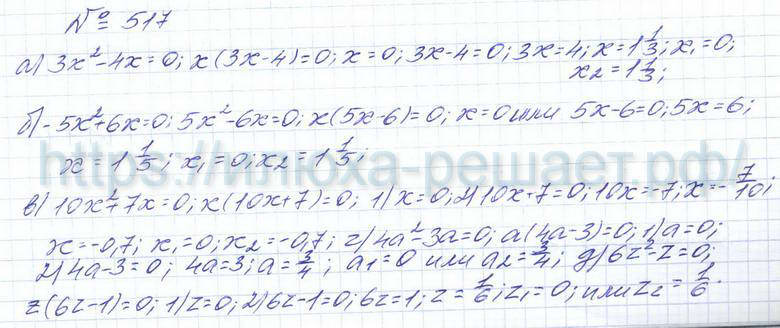 № 517
а) 3x²-4x=0; x(3x-4)=0; x=0; 3x-4=0; 3x=4; x=1 1/3; x₁=0;
x₂=1 1/3;
б) -5x²+6x=0; 5x²-6x=0; x(5x-6)=0; x=0 или 5x-6=0; 5x=6;
x=1 1/5; x₁=0; x₂=1 1/5;
https://илюха-решает.рф/
в) 10x²+7x=0; x(10x+7)=0; 1) x=0; 2) 10x+7=0; 10x=-7; x=-7/10;
x=-0,7; x₁=0; x₂=-0,7; г) 4a²-3a=0; a(4a-3)=0; 1) a=0;
2) 4a-3=0; 4a=3; a=3/4; a₁=0 или a₂=3/4; д) 6z²-z=0;
z(6z-1)=0; 1) z=0; 2) 6z-1=0; 6z=1; z=1/6; z₁=0; или z₂=1/6.